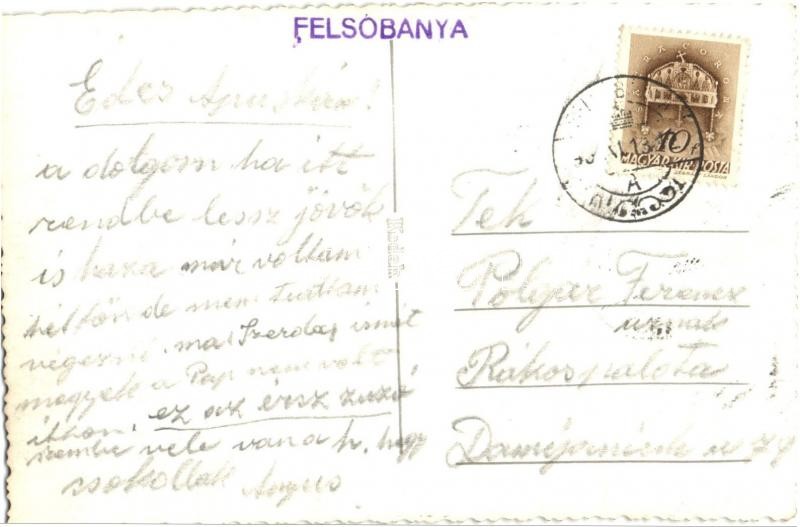 FELSŐBANYA
Edes Apuskám!
a dolgom ha itt
rendbe lessz jövök
is haza már voltam
hétfőn de nem tudtam
végezni ma Szerdán ismét
megyek a Pap nem volt
itthon. ez az érsz zuzó
szembe vele van a h. hegy
csokollak Anyus
Kodak
SZENT KORONA
10 f
MAGYAR KIR. POSTA
A
Tek
Polgár Ferencz
urnak
Rákospalota
Damjanich u 79